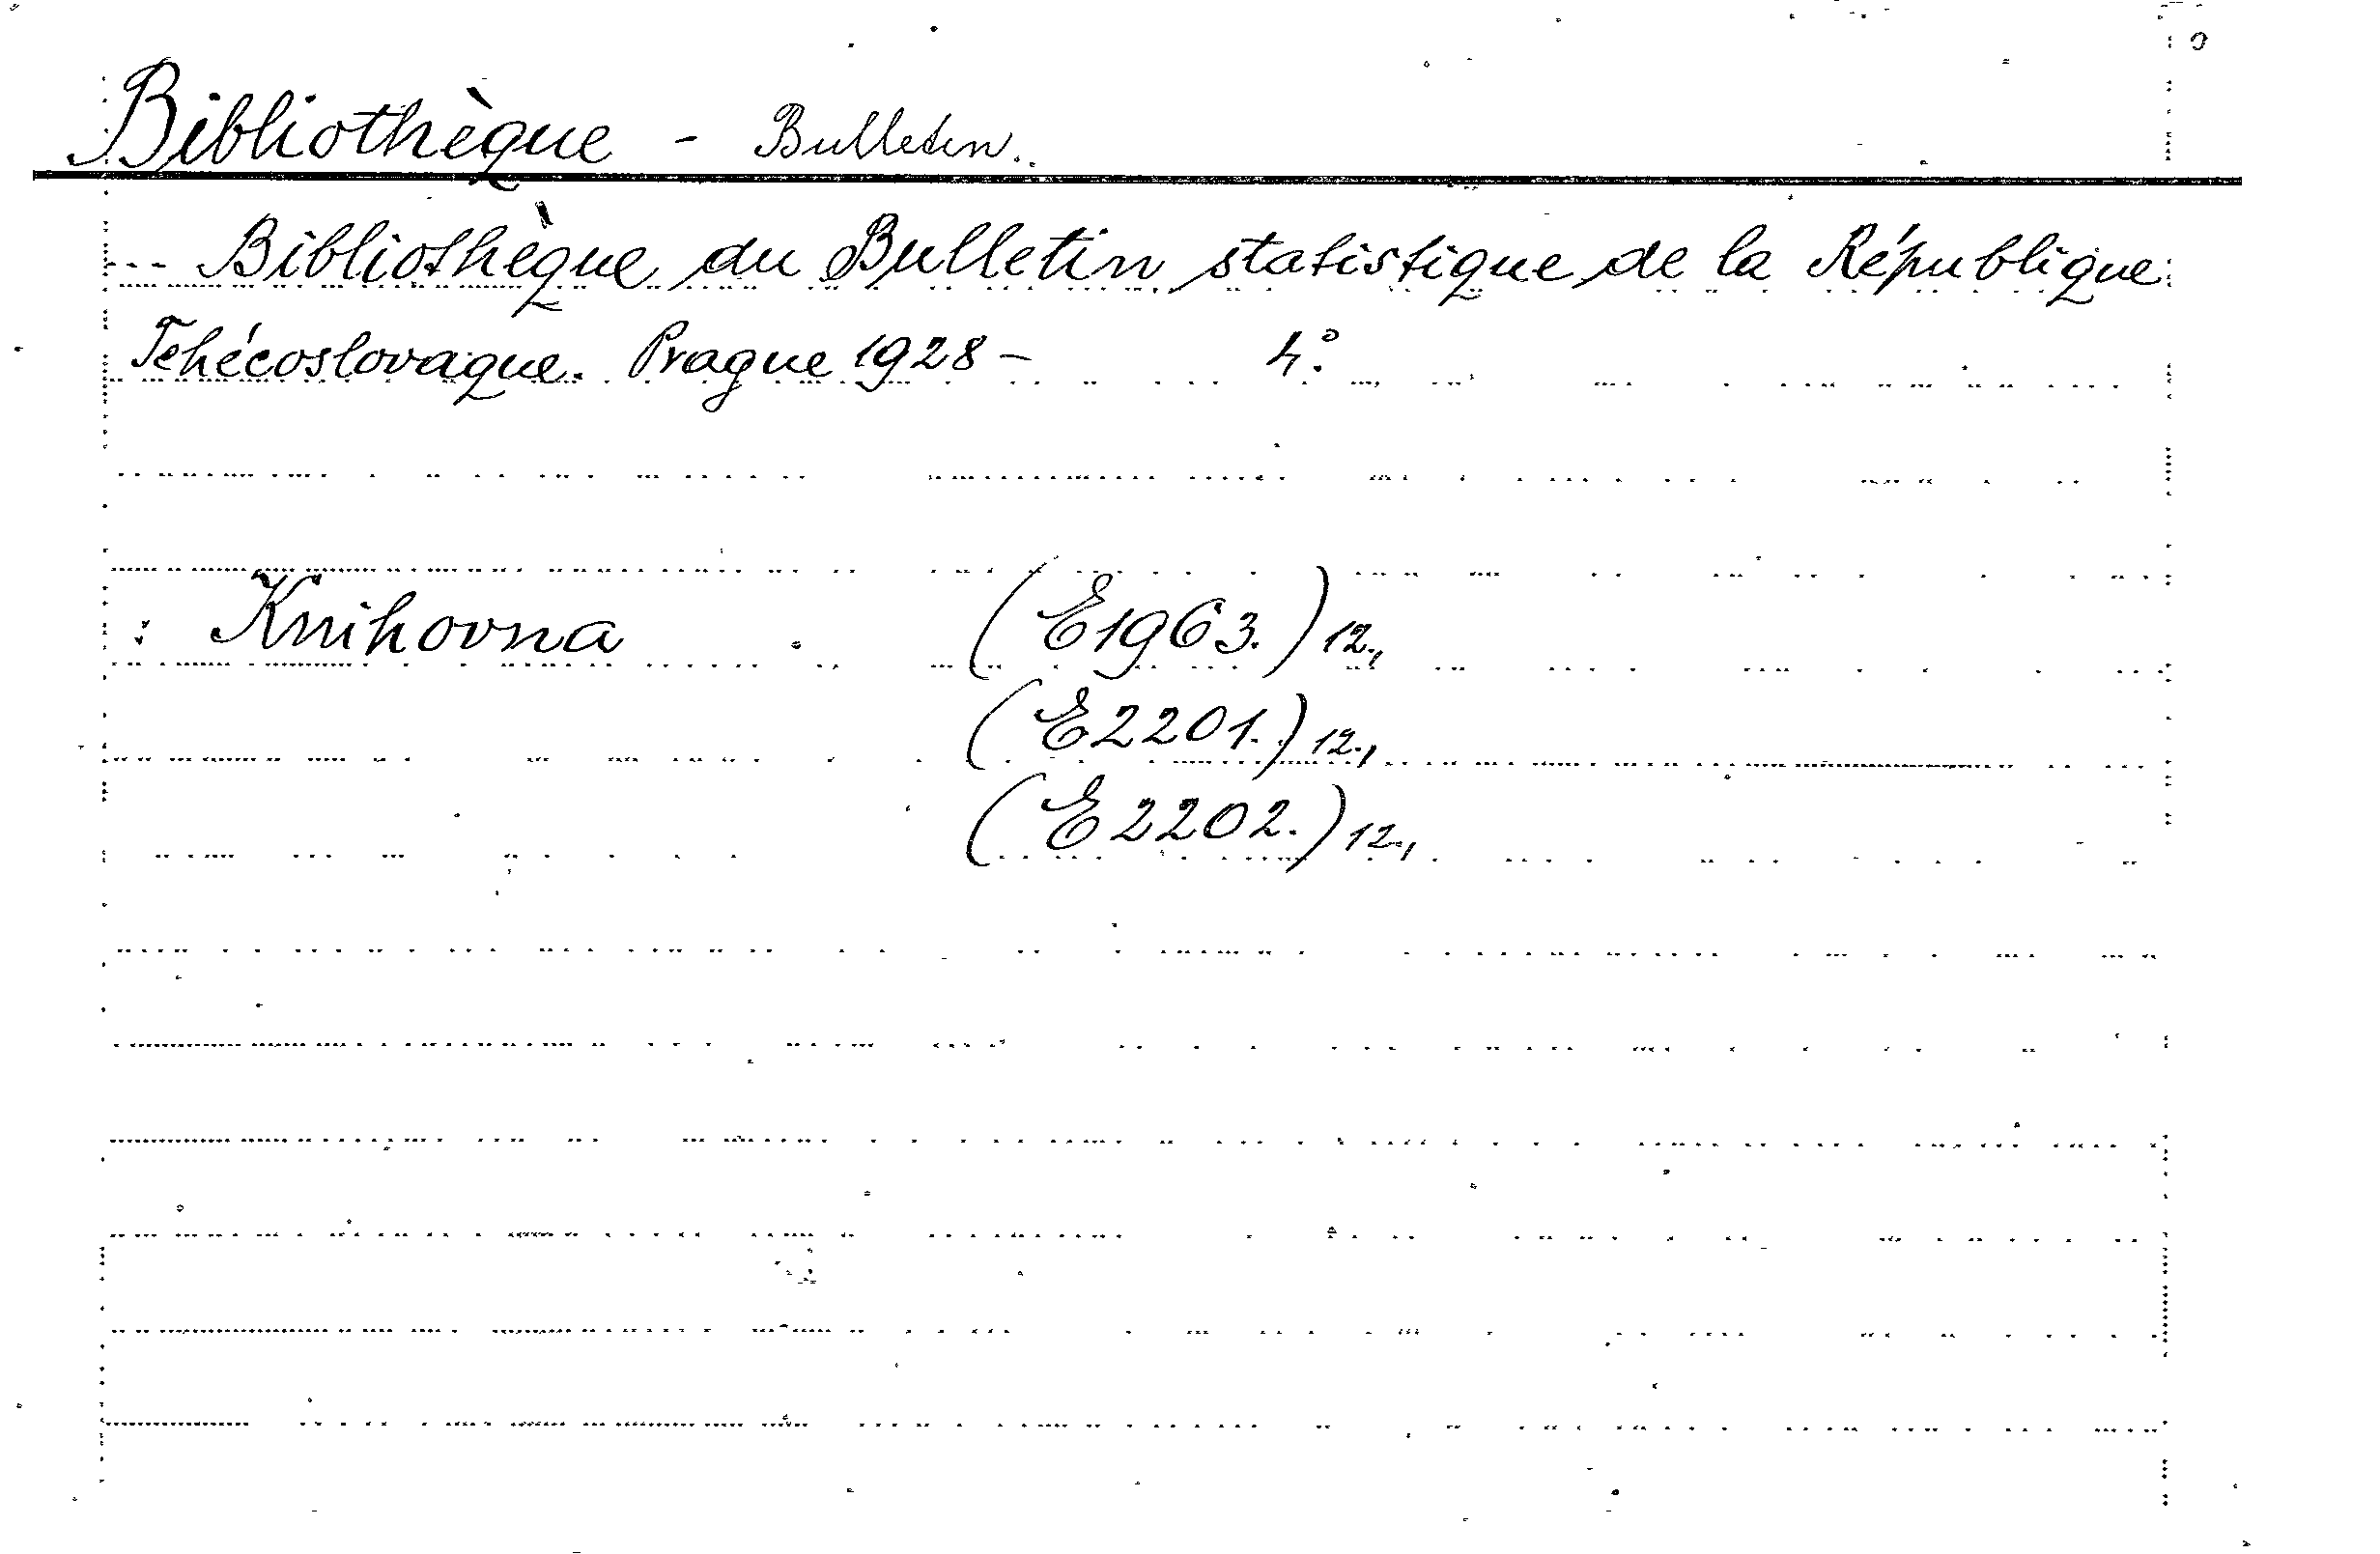 Bibliothèque - Bulletin.
-- Bibliothèque du Bulletin statistique de la République
Tchécoslovaque. Prague 1928 - 4°.
: Knihovna (E1963.) 12.,
(E2201.) 12.,
(E2202.) 12.,